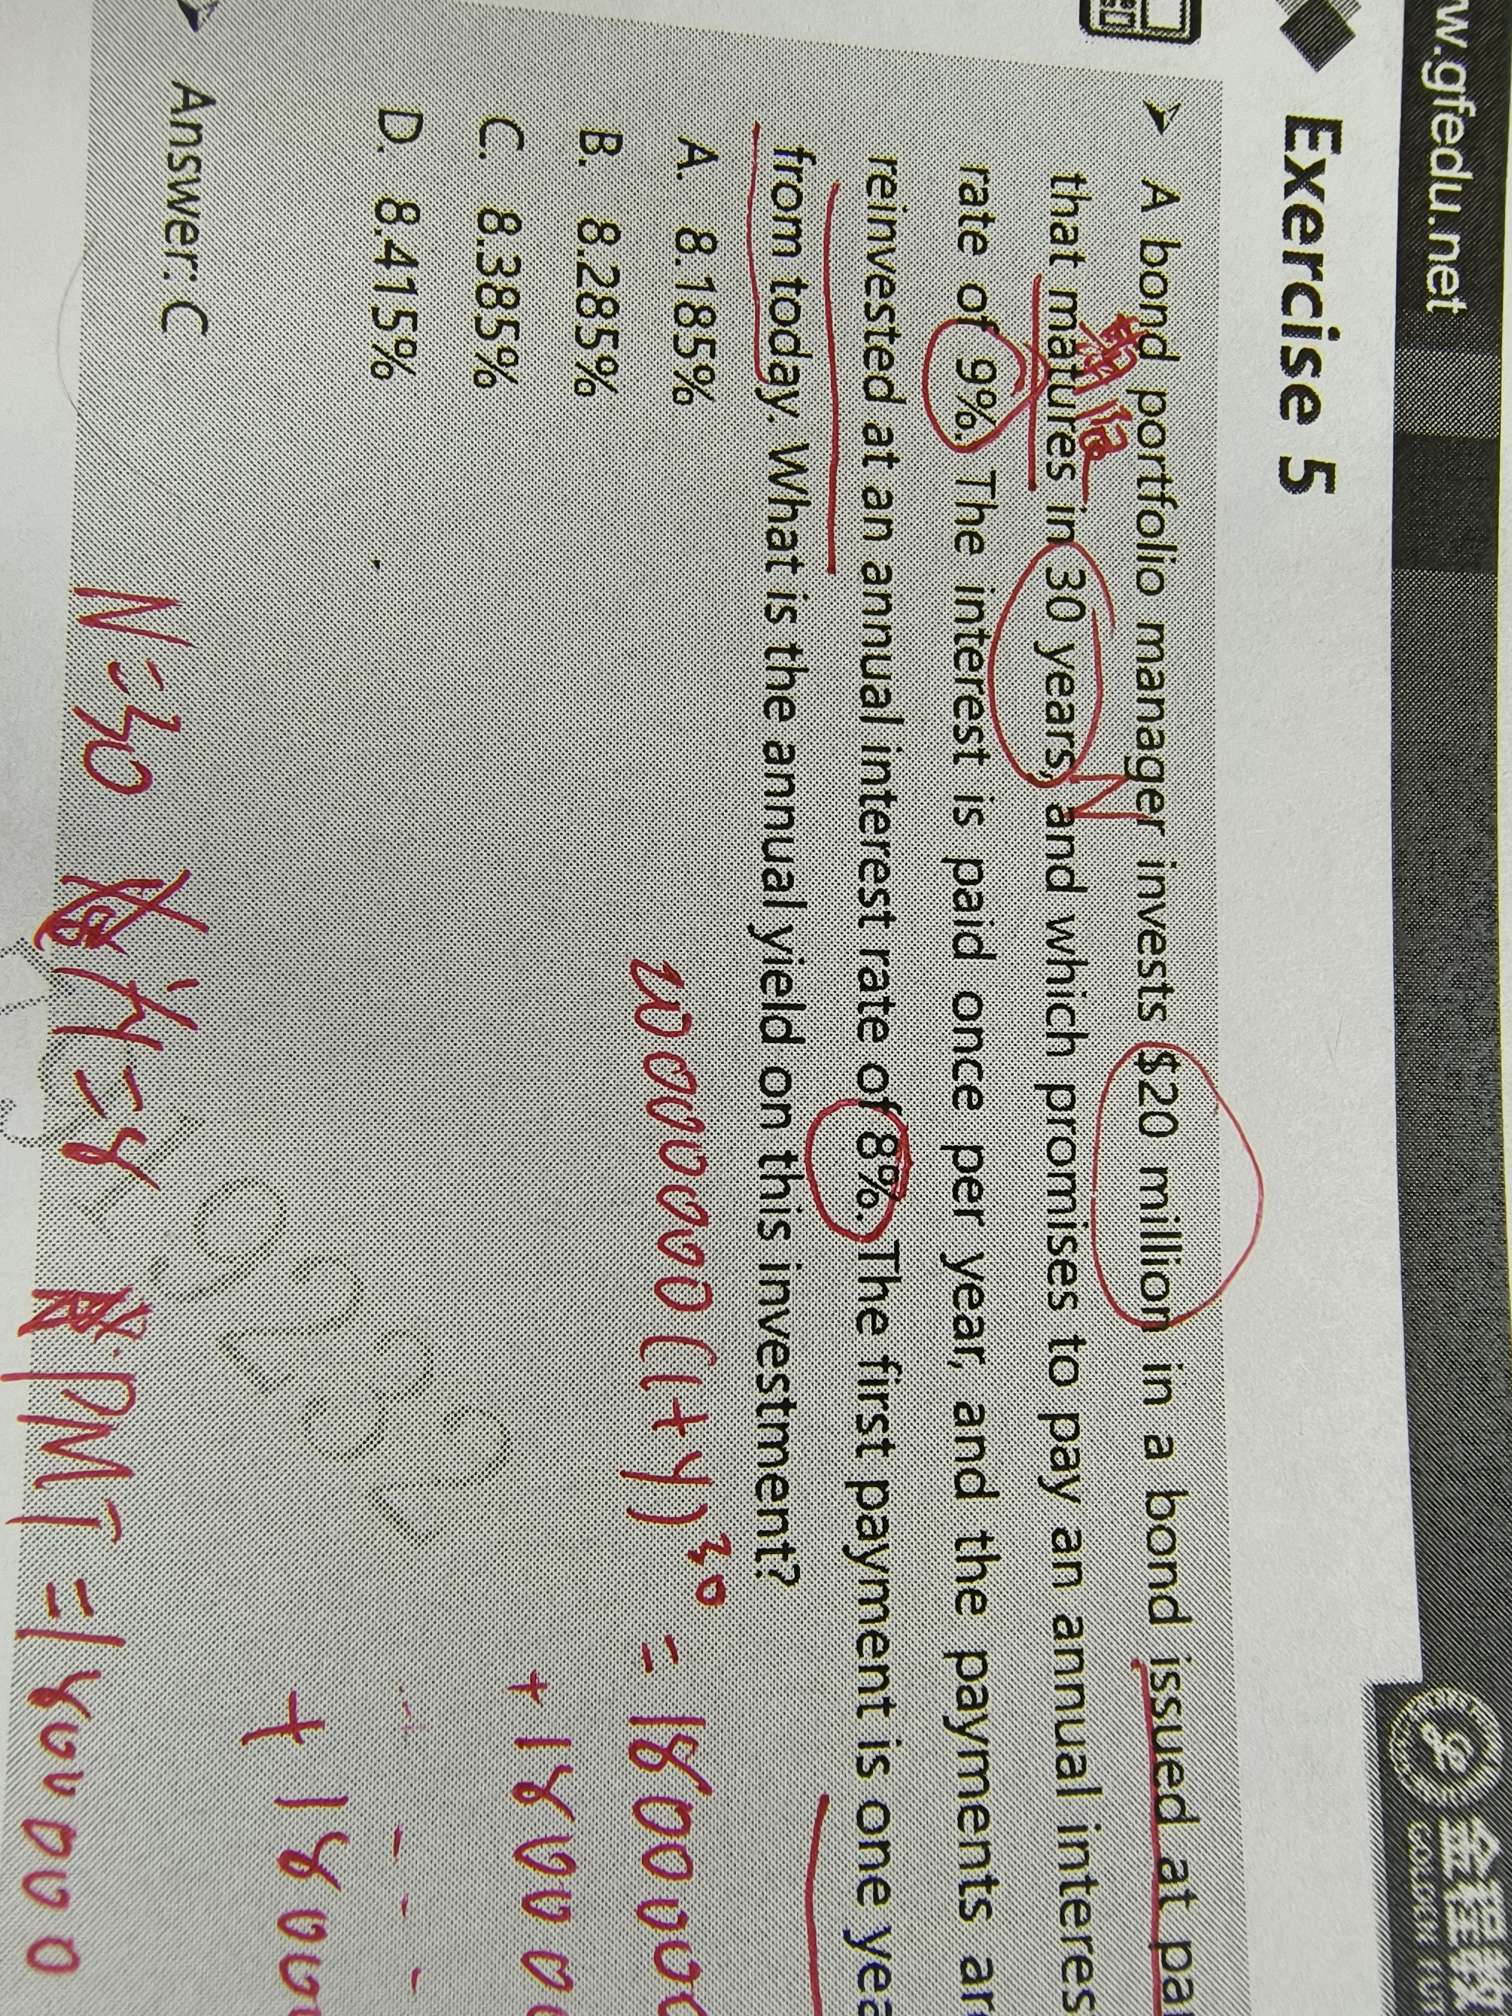 ww.gfedu.net
金程教
GOLDEN FU
Exercise 5
➢ A bond portfolio manager invests $20 million in a bond issued at par
that matures in 30 years, and which promises to pay an annual interes
rate of 9%. The interest is paid once per year, and the payments are
reinvested at an annual interest rate of 8%. The first payment is one yea
from today. What is the annual yield on this investment?
A. 8.185%
B. 8.285%
C. 8.385%
D. 8.415%
➢ Answer: C
N
20000000(1+Y)³⁰ = 180000
+ 180000
+ 1800
N=30
I/Y=8
PMT=1800000